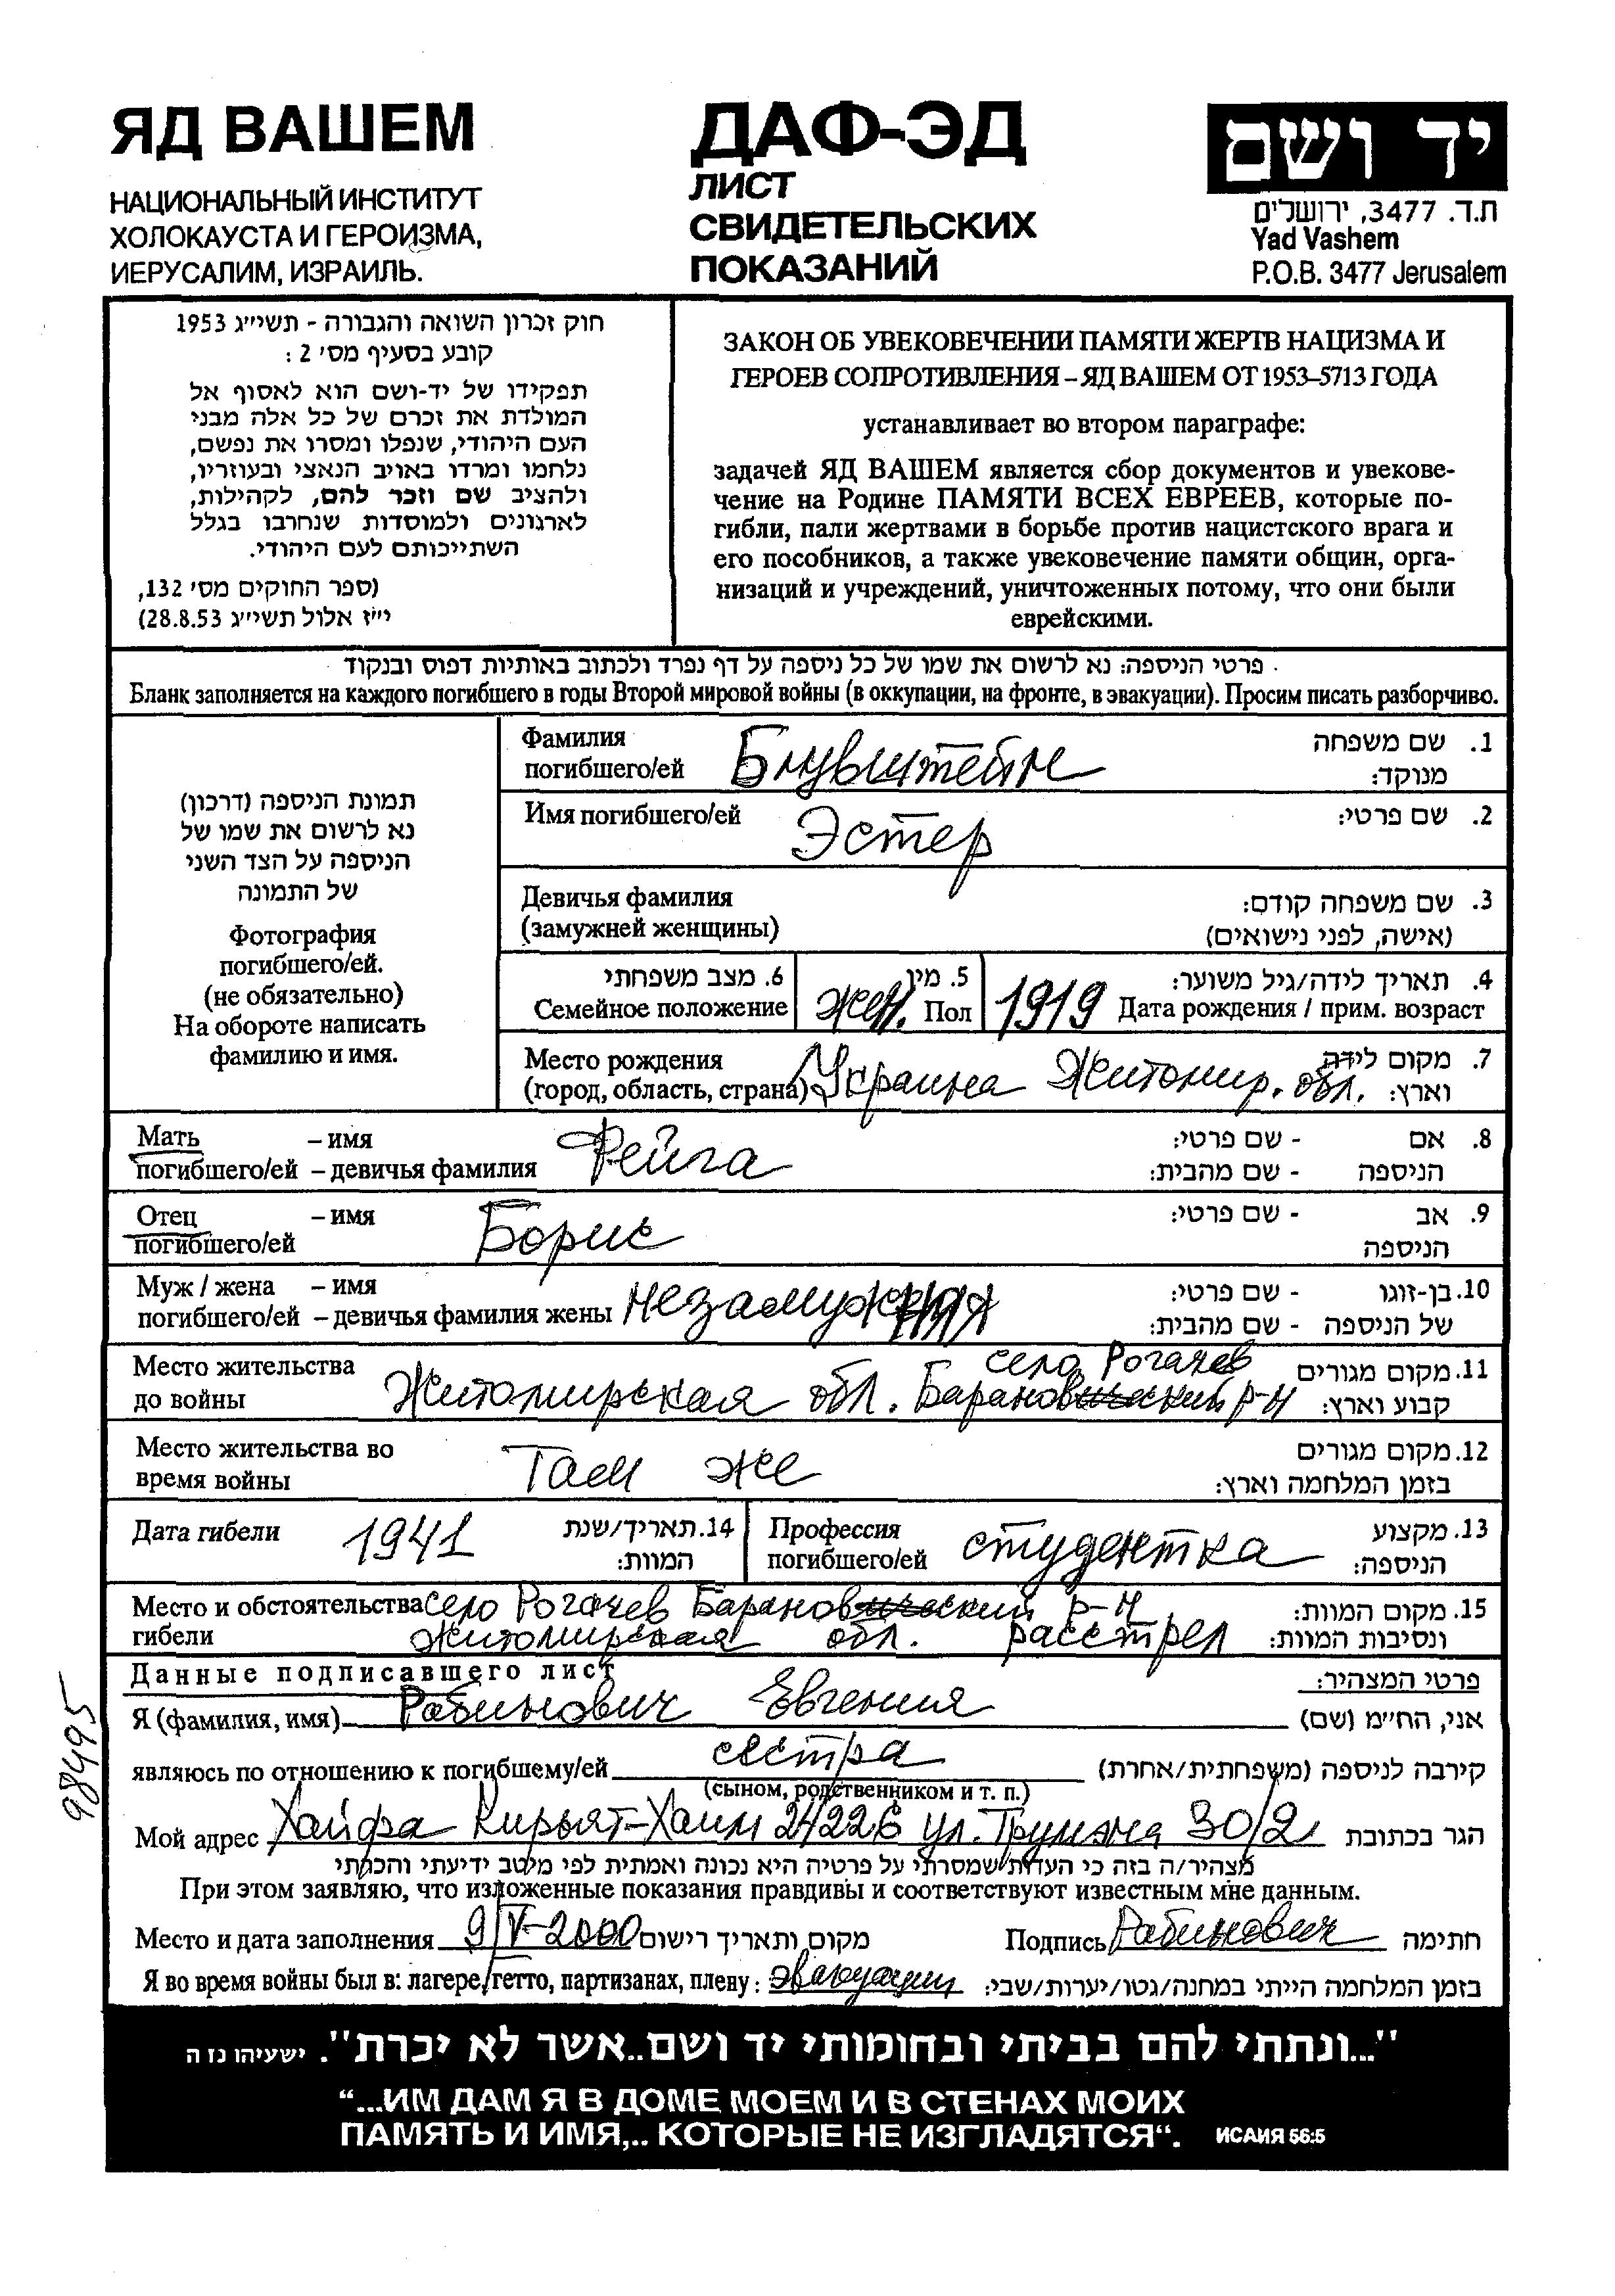 ЯД ВАШЕМ
НАЦИОНАЛЬНЫЙ ИНСТИТУТ
ХОЛОКАУСТА И ГЕРОИЗМА,
ИЕРУСАЛИМ, ИЗРАИЛЬ.
ДАФ-ЭД
ЛИСТ
СВИДЕТЕЛЬСКИХ
ПОКАЗАНИЙ
יד ושם
ת.ד. 3477, ירושלים
Yad Vashem
P.O.B. 3477 Jerusalem
חוק זכרון השואה והגבורה - תשי״ג 1953
קובע בסעיף מס׳ 2 :
תפקידו של יד-ושם הוא לאסוף אל
המולדת את זכרם של כל אלה מבני
העם היהודי, שנפלו ומסרו את נפשם,
נלחמו ומרדו באויב הנאצי ובעוזריו,
ולהציב שם וזכר להם, לקהילות,
לארגונים ולמוסדות שנחרבו בגלל
השתייכותם לעם היהודי.
(ספר החוקים מס׳ 132,
י״ז אלול תשי״ג 28.8.53)
ЗАКОН ОБ УВЕКОВЕЧЕНИИ ПАМЯТИ ЖЕРТВ НАЦИЗМА И
ГЕРОЕВ СОПРОТИВЛЕНИЯ – ЯД ВАШЕМ ОТ 1953–5713 ГОДА
устанавливает во втором параграфе:
задачей ЯД ВАШЕМ является сбор документов и увекове-
чение на Родине ПАМЯТИ ВСЕХ ЕВРЕЕВ, которые по-
гибли, пали жертвами в борьбе против нацистского врага и
его пособников, а также увековечение памяти общин, орга-
низаций и учреждений, уничтоженных потому, что они были
еврейскими.
פרטי הניספה: נא לרשום את שמו של כל ניספה על דף נפרד ולכתוב באותיות דפוס ובנקוד
Бланк заполняется на каждого погибшего в годы Второй мировой войны (в оккупации, на фронте, в эвакуации). Просим писать разборчиво.
תמונת הניספה (דרכון)
נא לרשום את שמו של
הניספה על הצד השני
של התמונה
Фотография
погибшего/ей.
(не обязательно)
На обороте написать
фамилию и имя.
Фамилия погибшего/ей Блувштейн 1. שם משפחה מנוקד:
Имя погибшего/ей Эстер 2. שם פרטי:
Девичья фамилия 3. שם משפחה קודם:
(замужней женщины) (אישה, לפני נישואים)
6. מצב משפחתי 5. מין 4. תאריך לידה/גיל משוער:
Семейное положение жен. Пол 1919 Дата рождения / прим. возраст
Место рождения 7. מקום לידה
(город, область, страна) Украина Житомир. обл. וארץ:
Мать – имя Фейга 8. אם - שם פרטי:
погибшего/ей – девичья фамилия הניספה - שם מהבית:
Отец – имя Борис 9. אב - שם פרטי:
погибшего/ей הניספה
Муж / жена – имя незамужняя 10. בן-זוגו - שם פרטי:
погибшего/ей – девичья фамилия жены של הניספה - שם מהבית:
Место жительства село Рогачев 11. מקום מגורים
до войны Житомирская обл. Барановский р-н קבוע וארץ:
Место жительства во Там же 12. מקום מגורים
время войны בזמן המלחמה וארץ:
Дата гибели 1941 14. תאריך/שנת המוות:
Профессия погибшего/ей студентка 13. מקצוע הניספה:
Место и обстоятельства село Рогачев Барановский р-н 15. מקום המוות:
гибели Житомирская обл. расстрел ונסיבות המוות:
Данные подписавшего лист פרטי המצהיר:
Я (фамилия, имя) Рабинович Евгения אני, הח״מ (שם)
являюсь по отношению к погибшему/ей сестра קירבה לניספה (משפחתית/אחרת)
(сыном, родственником и т. п.)
Мой адрес Хайфа Кирьят-Хаим 24226 ул. Трумэна 30/2 הגר בכתובת
מצהיר/ה בזה כי העדות שמסרתי על פרטיה היא נכונה ואמתית לפי מיטב ידיעתי והכרתי
При этом заявляю, что изложенные показания правдивы и соответствуют известным мне данным.
Место и дата заполнения 9/V-2000 מקום ותאריך רישום Подпись Рабинович חתימה
Я во время войны был в: лагере, гетто, партизанах, плену: эвакуации בזמן המלחמה הייתי במחנה/גטו/יערות/שבי:
98495
״...ונתתי להם בביתי ובחומותי יד ושם..אשר לא יכרת״. ישעיהו נז ה
“...ИМ ДАМ Я В ДОМЕ МОЕМ И В СТЕНАХ МОИХ
ПАМЯТЬ И ИМЯ,.. КОТОРЫЕ НЕ ИЗГЛАДЯТСЯ“. ИСАИЯ 56:5